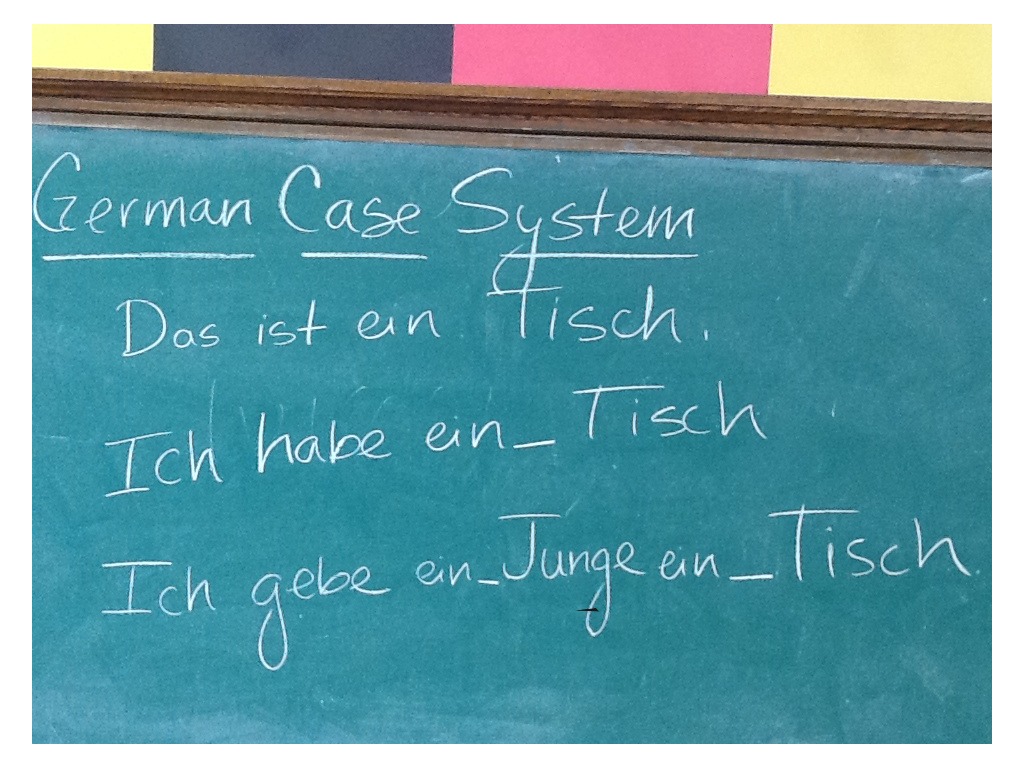 German Case System
Das ist ein Tisch.
Ich habe ein_ Tisch
Ich gebe ein_Junge ein_Tisch.